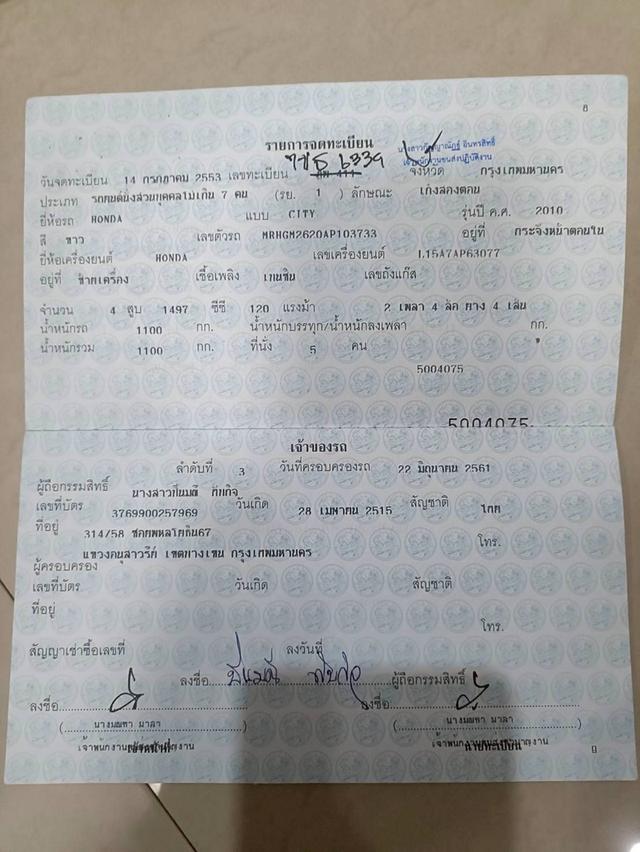 8
รายการจดทะเบียน
นางสาวกัญญาณัฏฐ์ อินทรสิทธิ์
เจ้าพนักงานขนส่งปฏิบัติงาน
6339
วันจดทะเบียน 14 กรกฎาคม 2553 เลขทะเบียน จังหวัด กรุงเทพมหานคร
ประเภท รถยนต์นั่งส่วนบุคคลไม่เกิน 7 คน (รย. 1 ) ลักษณะ เก๋งสองตอน
ยี่ห้อรถ HONDA แบบ CITY รุ่นปี ค.ศ. 2010
สี ขาว เลขตัวรถ MRHGM2620AP103733 อยู่ที่ กระจังหน้าตอนใน
ยี่ห้อเครื่องยนต์ HONDA เลขเครื่องยนต์ L15A7AP63077
อยู่ที่ ซ้ายเครื่อง เชื้อเพลิง เบนซิน เลขถังแก๊ส
จำนวน 4 สูบ 1497 ซีซี 120 แรงม้า 2 เพลา 4 ล้อ ยาง 4 เส้น
น้ำหนักรถ 1100 กก. น้ำหนักบรรทุก/น้ำหนักลงเพลา กก.
น้ำหนักรวม 1100 กก. ที่นั่ง 5 คน
5004075
5004075
เจ้าของรถ
ลำดับที่ 3 วันที่ครอบครองรถ 22 มิถุนายน 2561
ผู้ถือกรรมสิทธิ์ นางสาวปิ่นมณี
เลขที่บัตร 3769900257969 วันเกิด 28 เมษายน 2515 สัญชาติ ไทย
ที่อยู่ 314/58 ซอยพหลโยธิน67
โทร.
แขวงอนุสาวรีย์ เขตบางเขน กรุงเทพมหานคร
ผู้ครอบครอง
เลขที่บัตร วันเกิด สัญชาติ
ที่อยู่
โทร.
สัญญาเช่าซื้อเลขที่ ลงวันที่
ลงชื่อ ผู้ถือกรรมสิทธิ์
ลงชื่อ ลงชื่อ
(นางมณฑา มาลา) (นางมณฑา มาลา)
เจ้าพนักงาน นายทะเบียน